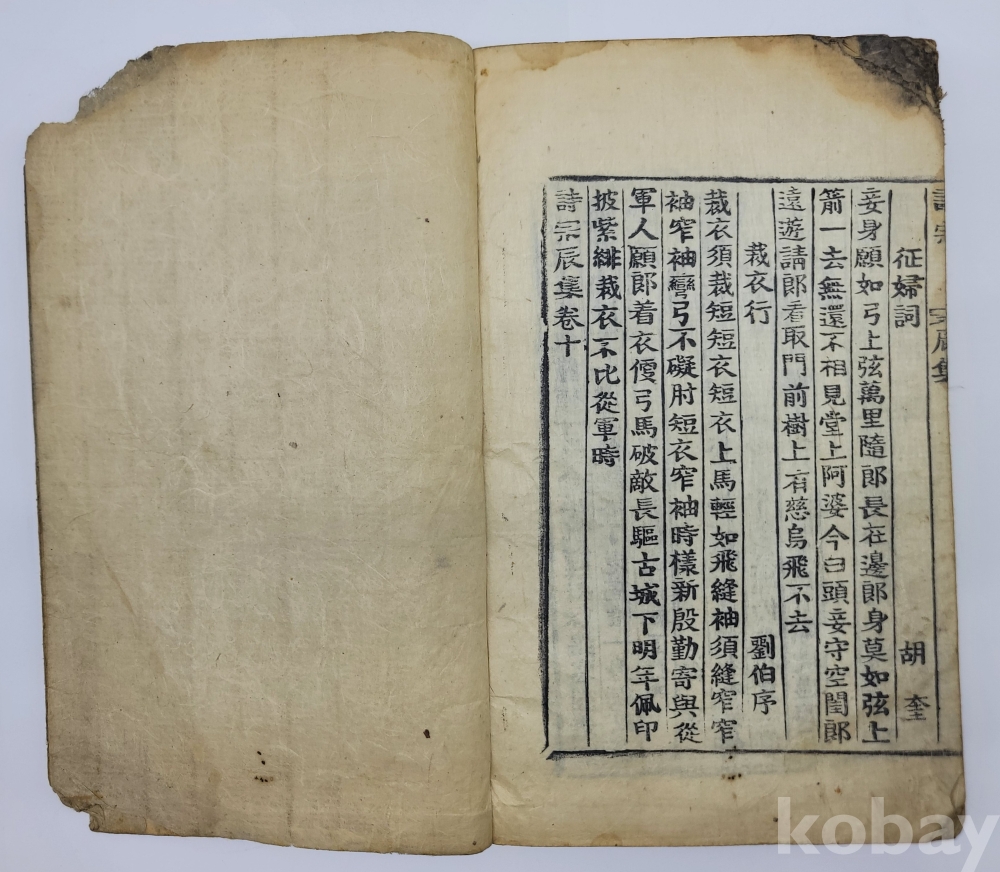 征婦詞 胡奎
妾身願如弓上弦萬里隨郎長在邊郎身莫如弦上
箭一去無還不相見堂上阿婆今白頭妾守空閨郎
遠遊請郎看取門前樹上有慈烏飛不去
裁衣行 劉伯序
裁衣須裁短短衣短衣上馬輕如飛縫袖須縫窄窄
袖窄袖彎弓不礙肘短衣窄袖時樣新殷勤寄與從
軍人願郎着衣便弓馬破敵長驅古城下明年佩印
披紫緋裁衣不比從軍時
詩宗辰集卷十
kobay